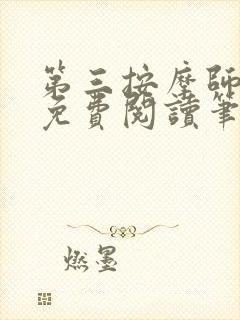 第三按摩師
免費閱讀筆
燃墨